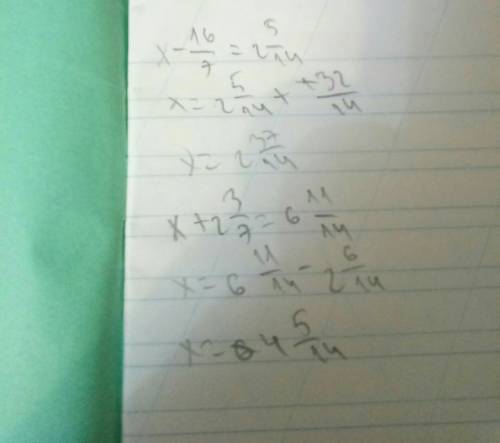 x - 16/7 = 2 5/14
x = 2 5/14 + +32/14
x = 2 37/14
x + 2 3/7 = 6 11/14
x = 6 11/14 - 2 6/14
x = 4 5/14